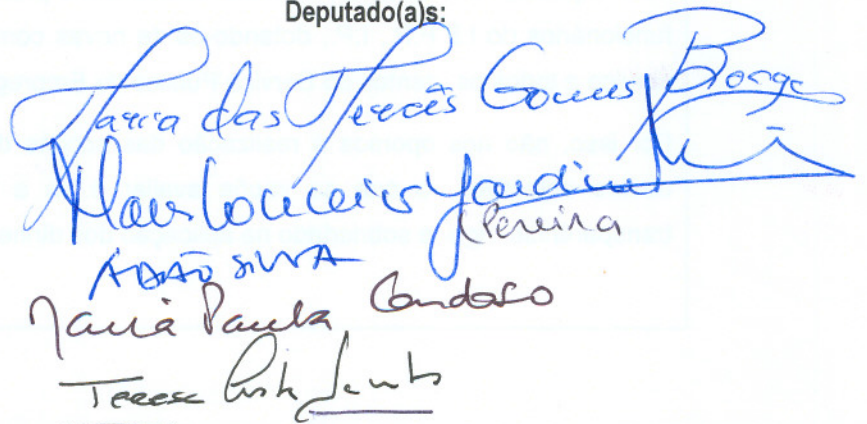 Deputado(a)s:
Maria das Mercês Gomes Borges
Maria Conceição Jardim
Pereira
ADÃO SILVA
Maria Paula Cardoso
Teresa Costa Santos